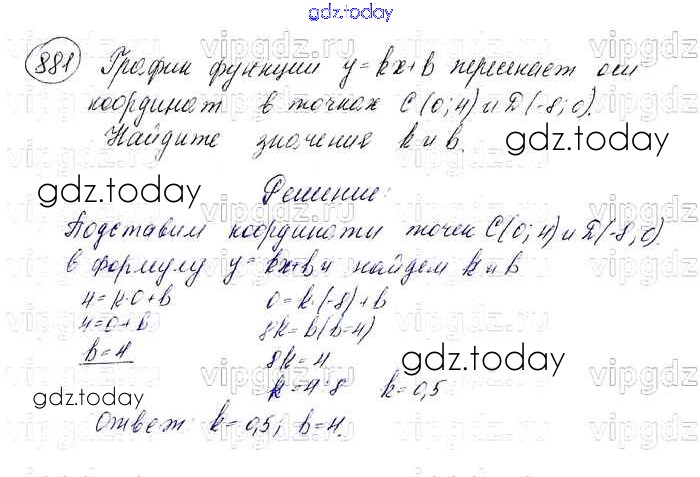 gdz.today
881 График функции y=kx+b пересекает оси
координат в точках C(0;4) и D(-8;0).
Найдите значения k и b.
gdz.today
gdz.today
Решение:
Подставим координаты точек C(0;4) и D(-8;0).
в формулу y=kx+b и найдем k и b
4=k·0+b 0=k·(-8)+b
4=0+b 8k=b(b=4)
b=4 8k=4
gdz.today
k=4:8 k=0,5
gdz.today
Ответ: k=0,5; b=4.
vipgdz.ru